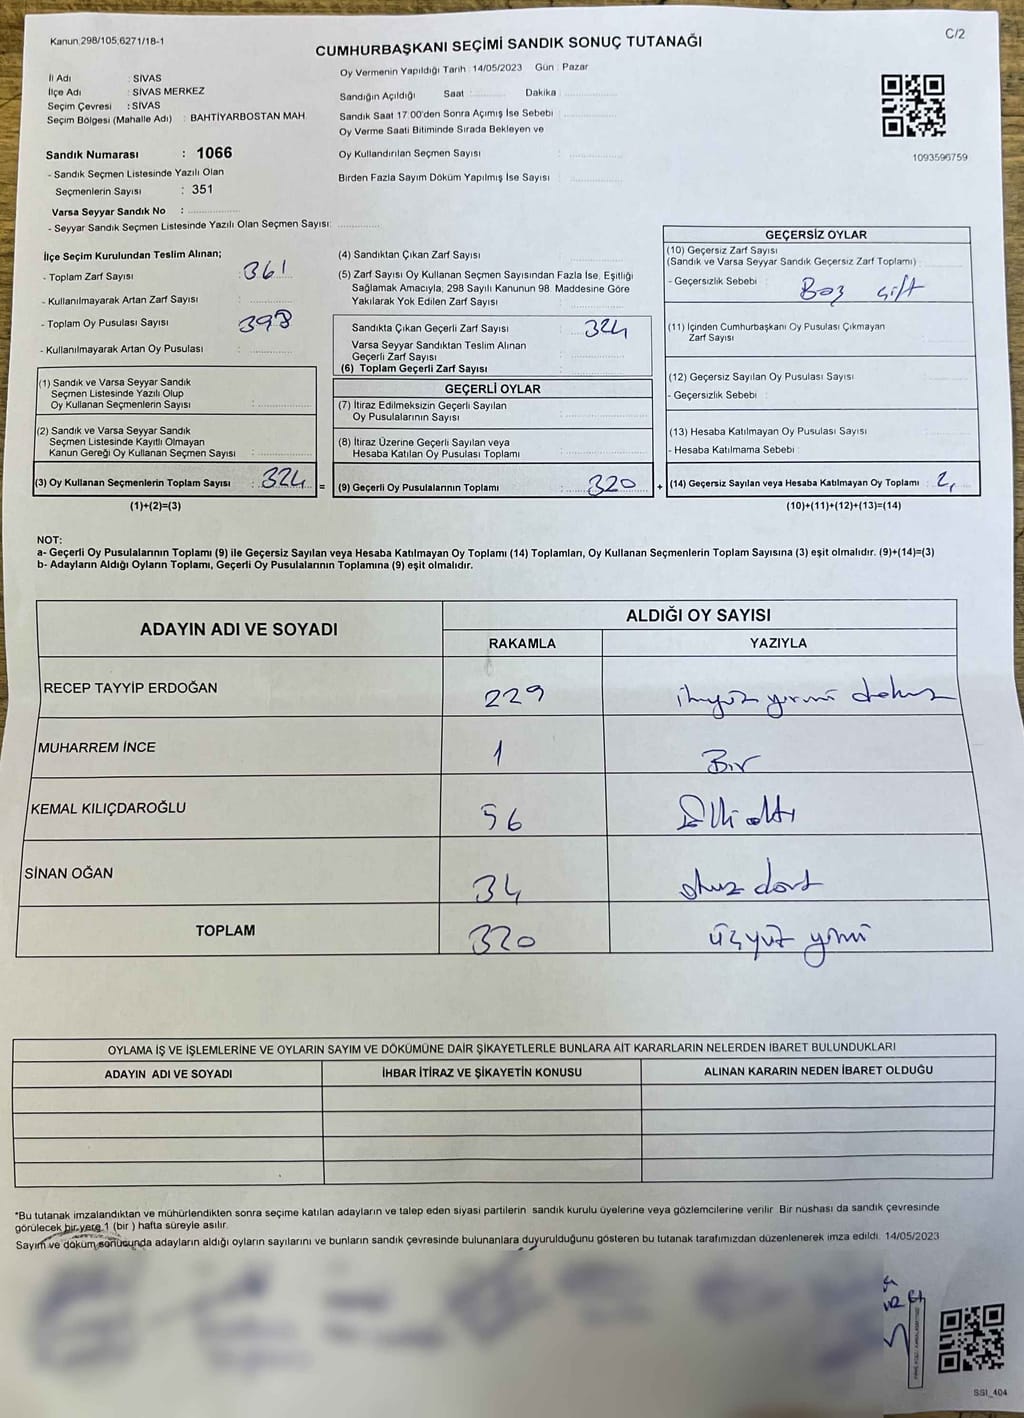 Kanun 298/105,6271/18-1
C/2
CUMHURBAŞKANI SEÇİMİ SANDIK SONUÇ TUTANAĞI
İl Adı : SİVAS
İlçe Adı : SİVAS MERKEZ
Seçim Çevresi : SİVAS
Seçim Bölgesi (Mahalle Adı) : BAHTİYARBOSTAN MAH.
Sandık Numarası : 1066
- Sandık Seçmen Listesinde Yazılı Olan
Seçmenlerin Sayısı : 351
Varsa Seyyar Sandık No :
- Seyyar Sandık Seçmen Listesinde Yazılı Olan Seçmen Sayısı:
Oy Vermenin Yapıldığı Tarih : 14/05/2023 Gün : Pazar
Sandığın Açıldığı Saat : Dakika :
Sandık Saat 17:00'den Sonra Açımış İse Sebebi :
Oy Verme Saati Bitiminde Sırada Bekleyen ve
Oy Kullandırılan Seçmen Sayısı :
Birden Fazla Sayım Döküm Yapılmış İse Sayısı :
1093596759
İlçe Seçim Kurulundan Teslim Alınan;
- Toplam Zarf Sayısı : 361
- Kullanılmayarak Artan Zarf Sayısı :
- Toplam Oy Pusulası Sayısı : 398
- Kullanılmayarak Artan Oy Pusulası :
(1) Sandık ve Varsa Seyyar Sandık
Seçmen Listesinde Yazılı Olup
Oy Kullanan Seçmenlerin Sayısı :
(2) Sandık ve Varsa Seyyar Sandık
Seçmen Listesinde Kayıtlı Olmayan
Kanun Gereği Oy Kullanan Seçmen Sayısı :
(3) Oy Kullanan Seçmenlerin Toplam Sayısı : 324 =
(1)+(2)=(3)
(4) Sandıktan Çıkan Zarf Sayısı :
(5) Zarf Sayısı Oy Kullanan Seçmen Sayısından Fazla İse, Eşitliği
Sağlamak Amacıyla; 298 Sayılı Kanunun 98. Maddesine Göre
Yakılarak Yok Edilen Zarf Sayısı :
Sandıkta Çıkan Geçerli Zarf Sayısı : 324
Varsa Seyyar Sandıktan Teslim Alınan
Geçerli Zarf Sayısı :
(6) Toplam Geçerli Zarf Sayısı :
GEÇERLİ OYLAR
(7) İtiraz Edilmeksizin Geçerli Sayılan
Oy Pusulalarının Sayısı :
(8) İtiraz Üzerine Geçerli Sayılan veya
Hesaba Katılan Oy Pusulası Toplamı :
(9) Geçerli Oy Pusulalarının Toplamı : 320 +
GEÇERSİZ OYLAR
(10) Geçersiz Zarf Sayısı
(Sandık ve Varsa Seyyar Sandık Geçersiz Zarf Toplamı) :
- Geçersizlik Sebebi : Boş çift
(11) İçinden Cumhurbaşkanı Oy Pusulası Çıkmayan
Zarf Sayısı :
(12) Geçersiz Sayılan Oy Pusulası Sayısı :
- Geçersizlik Sebebi :
(13) Hesaba Katılmayan Oy Pusulası Sayısı :
- Hesaba Katılmama Sebebi :
(14) Geçersiz Sayılan veya Hesaba Katılmayan Oy Toplamı : 2
(10)+(11)+(12)+(13)=(14)
NOT:
a- Geçerli Oy Pusulalarının Toplamı (9) ile Geçersiz Sayılan veya Hesaba Katılmayan Oy Toplamı (14) Toplamları, Oy Kullanan Seçmenlerin Toplam Sayısına (3) eşit olmalıdır. (9)+(14)=(3)
b- Adayların Aldığı Oyların Toplamı, Geçerli Oy Pusulalarının Toplamına (9) eşit olmalıdır.
ADAYIN ADI VE SOYADI
ALDIĞI OY SAYISI
RAKAMLA YAZIYLA
RECEP TAYYİP ERDOĞAN 229 ikiyüz yirmi dokuz
MUHARREM İNCE 1 Bir
KEMAL KILIÇDAROĞLU 56 Elli altı
SİNAN OĞAN 34 otuz dört
TOPLAM 320 üçyüz yirmi
OYLAMA İŞ VE İŞLEMLERİNE VE OYLARIN SAYIM VE DÖKÜMÜNE DAİR ŞİKAYETLERLE BUNLARA AİT KARARLARIN NELERDEN İBARET BULUNDUKLARI
ADAYIN ADI VE SOYADI İHBAR İTİRAZ VE ŞİKAYETİN KONUSU ALINAN KARARIN NEDEN İBARET OLDUĞU
*Bu tutanak imzalandıktan ve mühürlendikten sonra seçime katılan adayların ve talep eden siyasi partilerin sandık kurulu üyelerine veya gözlemcilerine verilir. Bir nüshası da sandık çevresinde
görülecek bir yere 1 (bir ) hafta süreyle asılır.
Sayım ve döküm sonucunda adayların aldığı oyların sayılarını ve bunların sandık çevresinde bulunanlara duyurulduğunu gösteren bu tutanak tarafımızdan düzenlenerek imza edildi. 14/05/2023
SSI_404